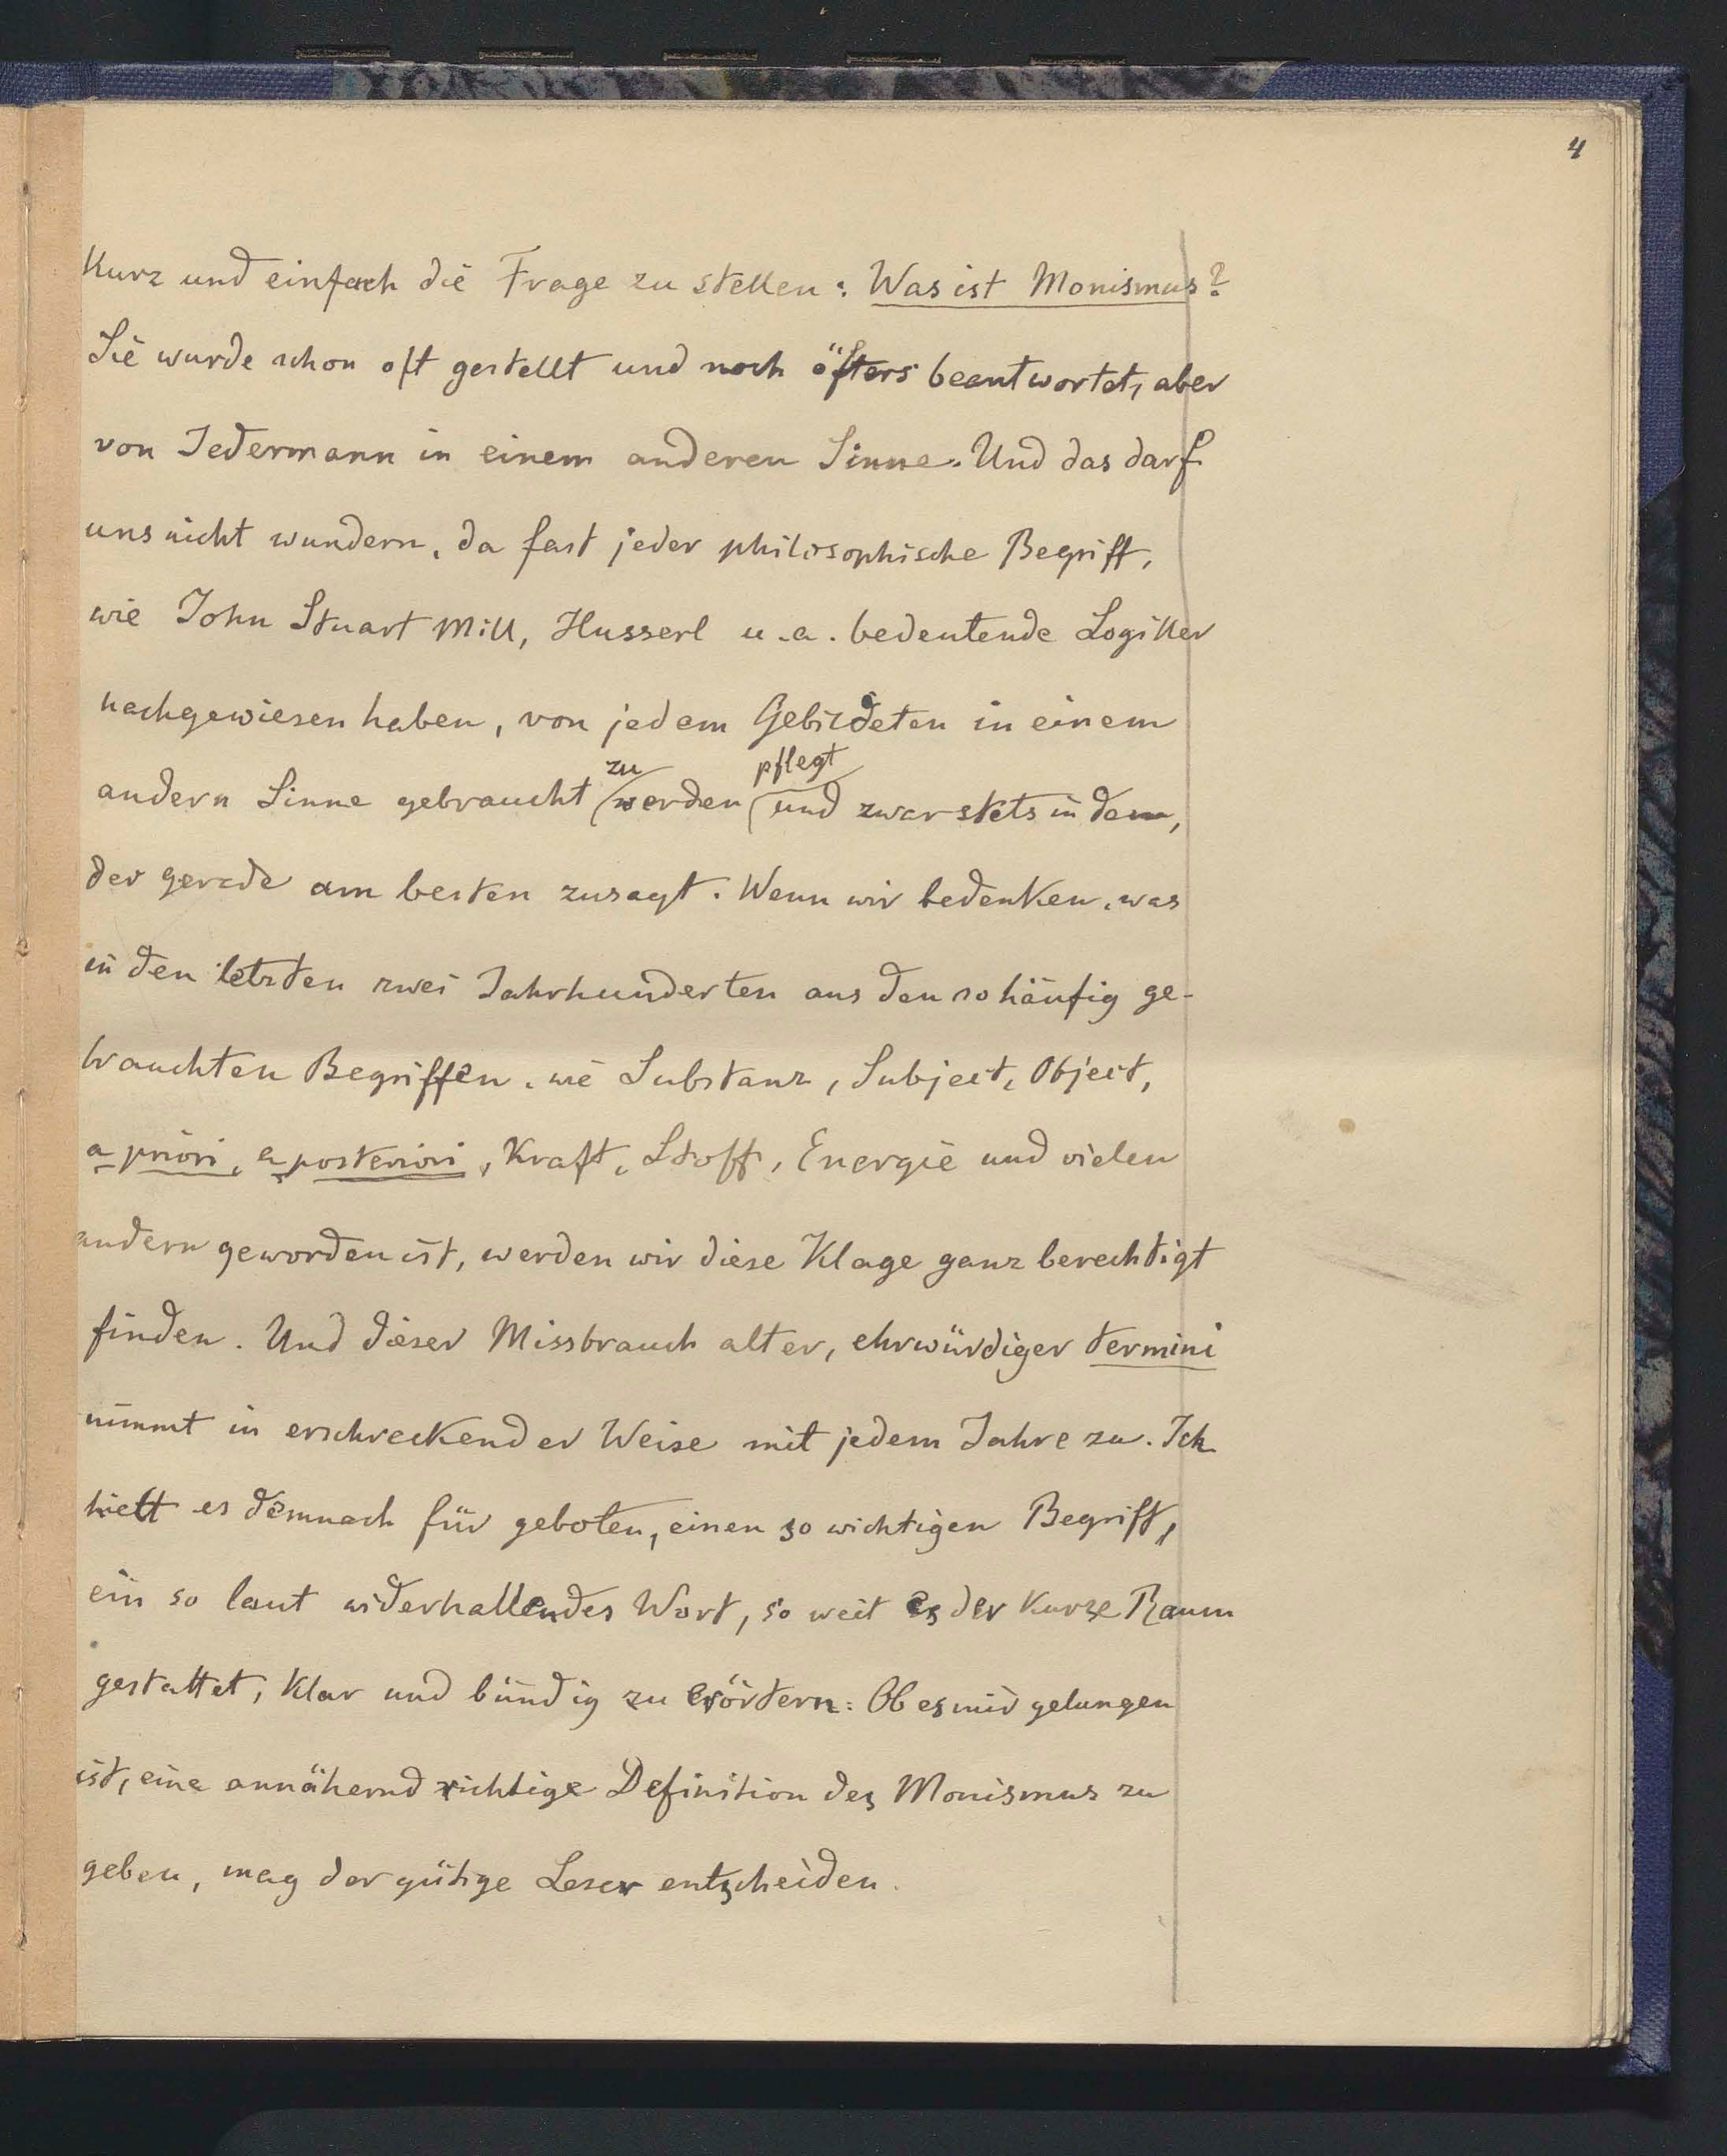 4
kurz und einfach die Frage zu stellen: Was ist Monismus?
Sie wurde schon oft gestellt und noch öfters beantwortet, aber
von Jedermann in einem anderen Sinne. Und das darf
uns nicht wundern, da fast jeder philosophische Begriff,
wie John Stuart Mill, Husserl u. a. bedeutende Logiker
nachgewiesen haben, von jedem Gebildeten in einem
andern Sinne gebraucht zu werden pflegt und zwar stets in dem,
der gerade am besten zusagt. Wenn wir bedenken, was
in den letzten zwei Jahrhunderten aus den so häufig ge-
brauchten Begriffen, wie Substanz, Subject, Object,
a priori, a posteriori, Kraft, Stoff, Energie und vielen
andern geworden ist, werden wir diese Klage ganz berechtigt
finden. Und dieser Missbrauch alter, ehrwürdiger termini
nimmt in erschreckender Weise mit jedem Jahre zu. Ich
hielt es demnach für geboten, einen so wichtigen Begriff,
ein so laut widerhallendes Wort, so weit es der kurze Raum
gestattet, klar und bündig zu erörtern. Ob es mir gelungen
ist, eine annähernd richtige Definition des Monismus zu
geben, mag der gütige Leser entscheiden.